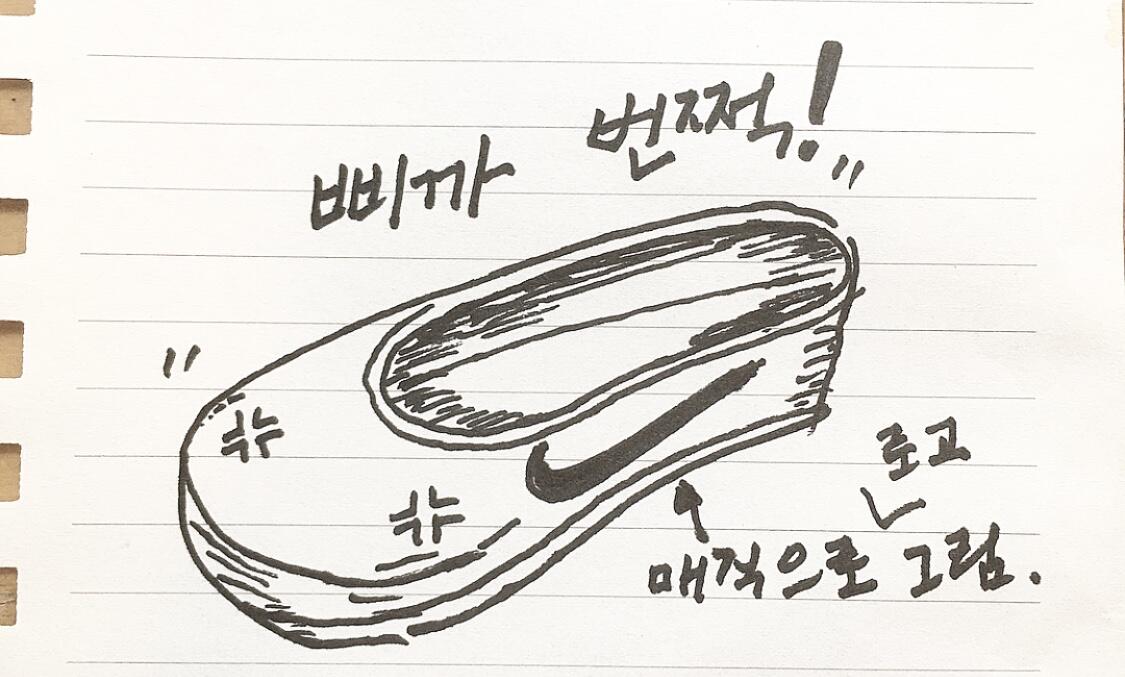 " 삐까 번쩍! "
로고
매직으로 그림.